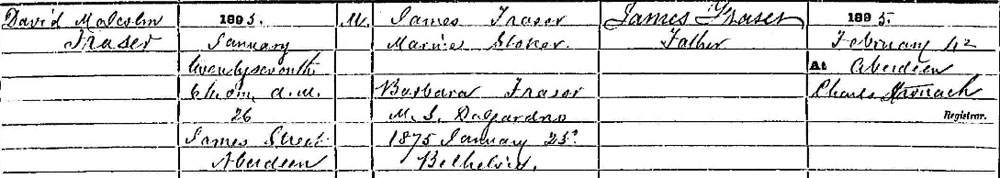 David Malcolm
Fraser
1895.
January
twentyseventh
0h 0m. a.m.
26
James Street
Aberdeen
M.
James Fraser
Marine Stoker.
Barbara Fraser
M.S. Dalgardno
1875 January 23d
Belhelvie.
James Fraser
Father
1895.
February
At Aberdeen
Charles
Registrar.